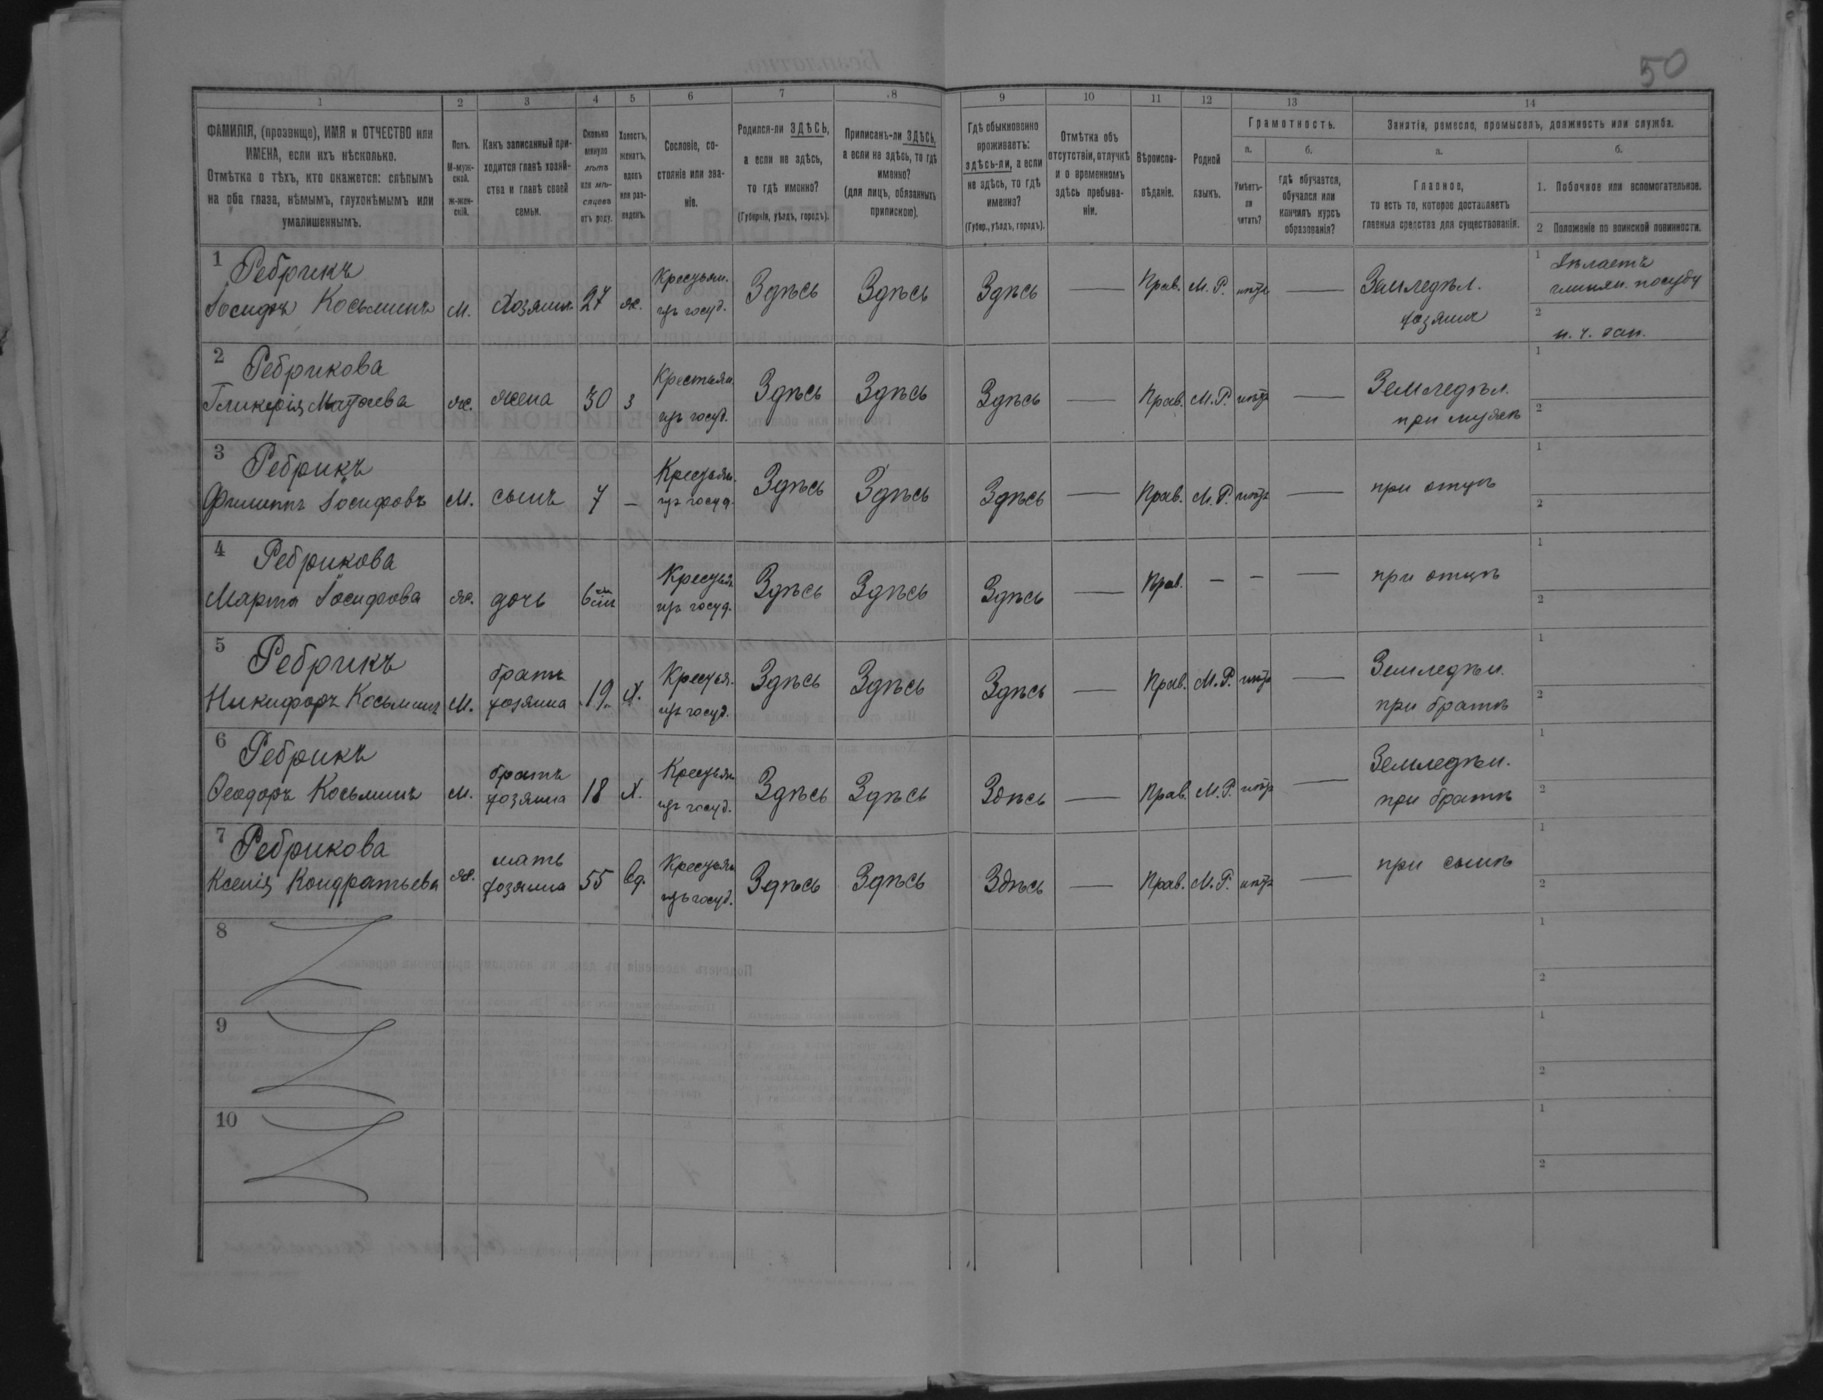 50
1 2 3 4 5 6 7 8 9 10 11 12 13 14
ФАМИЛІЯ, (прозвище), ИМЯ и ОТЧЕСТВО или
ИМЕНА, если ихъ нѣсколько.
Отмѣтка о тѣхъ, кто окажется: слѣпымъ
на оба глаза, нѣмымъ, глухонѣмымъ или
умалишеннымъ.
Полъ.
М-муж-
ской.
Ж-жен-
скій.
Какъ записанный при-
ходится главѣ хозяй-
ства и главѣ своей
семьи.
Сколько
минуло
лѣтъ
или мѣ-
сяцевъ
отъ роду.
Холостъ,
женатъ,
вдовъ
или раз-
веденъ.
Сословіе, со-
стояніе или зва-
ніе.
Родился-ли ЗДѢСЬ,
а если не здѣсь,
то гдѣ именно?
(Губернія, уѣздъ, городъ).
Приписанъ-ли ЗДѢСЬ,
а если не здѣсь, то гдѣ
именно?
(для лицъ, обязанныхъ
припискою).
Гдѣ обыкновенно
проживаетъ:
здѣсь-ли, а если
не здѣсь, то гдѣ
именно?
(Губер., уѣздъ, городъ).
Отмѣтка объ
отсутствіи, отлучкѣ
и о временномъ
здѣсь пребыва-
ніи.
Вѣроиспо-
вѣданіе.
Родной
языкъ.
Грамотность.
а.
Умѣетъ-
ли
читать?
б.
гдѣ обучается,
обучался или
кончилъ курсъ
образованія?
Занятіе, ремесло, промыселъ, должность или служба.
а.
Главное,
то есть то, которое доставляетъ
главныя средства для существованія.
б.
1. Побочное или вспомогательное.
2 Положеніе по воинской повинности.
1 Ребрикъ
Іосифъ Косьминъ М. Хозяинъ 27 ж. Крестьян. изъ госуд. Здѣсь Здѣсь Здѣсь — Прав. М. Р. нѣтъ — Земледѣл. хозяинъ
1 дѣлаетъ
глинян. посуду
2 н. ч. зап.
2 Ребрикова
Гликерія Матѳева ж. жена 30 з Крестьян. изъ госуд. Здѣсь Здѣсь Здѣсь — Прав. М. Р. нѣтъ — Земледѣл. при мужѣ
1
2
3 Ребрикъ
Филиппъ Іосифовъ М. сынъ 7 — Крестьян. изъ госуд. Здѣсь Здѣсь Здѣсь — Прав. М. Р. нѣтъ — при отцѣ
1
2
4 Ребрикова
Марѳа Іосифова ж. дочь 6 Крестьян изъ госуд. Здѣсь Здѣсь Здѣсь — Прав. — — — при отцѣ
1
2
5 Ребрикъ
Никифоръ Косьминъ М. братъ хозяина 19 Х. Крестья. изъ госуд. Здѣсь Здѣсь Здѣсь — Прав. М. Р. нѣтъ — Земледѣл. при братѣ
1
2
6 Ребрикъ
Ѳеодоръ Косьминъ М. братъ хозяина 18 Х. Крестьян изъ госуд. Здѣсь Здѣсь Здѣсь — Прав. М. Р. нѣтъ — Земледѣл. при братѣ
1
2
7 Ребрикова
Ксенія Кондратьева ж. мать хозяина 55 вд. Крестьян изъ госуд. Здѣсь Здѣсь Здѣсь — Прав. М. Р. нѣтъ — при сынѣ
1
2
8
1
2
9
1
2
10
1
2